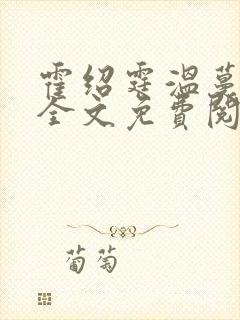 霍绍霆温蔓
全文免费阅
葡萄